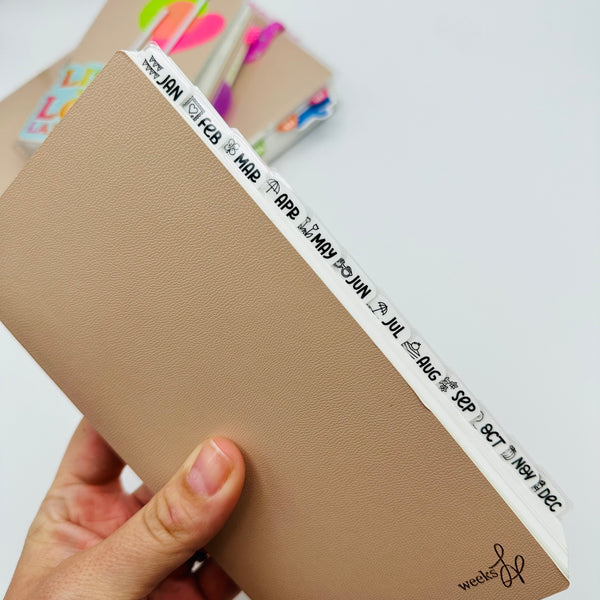 JAN
FEB
MAR
APR
MAY
JUN
JUL
AUG
SEP
OCT
NOV
DEC
weeks